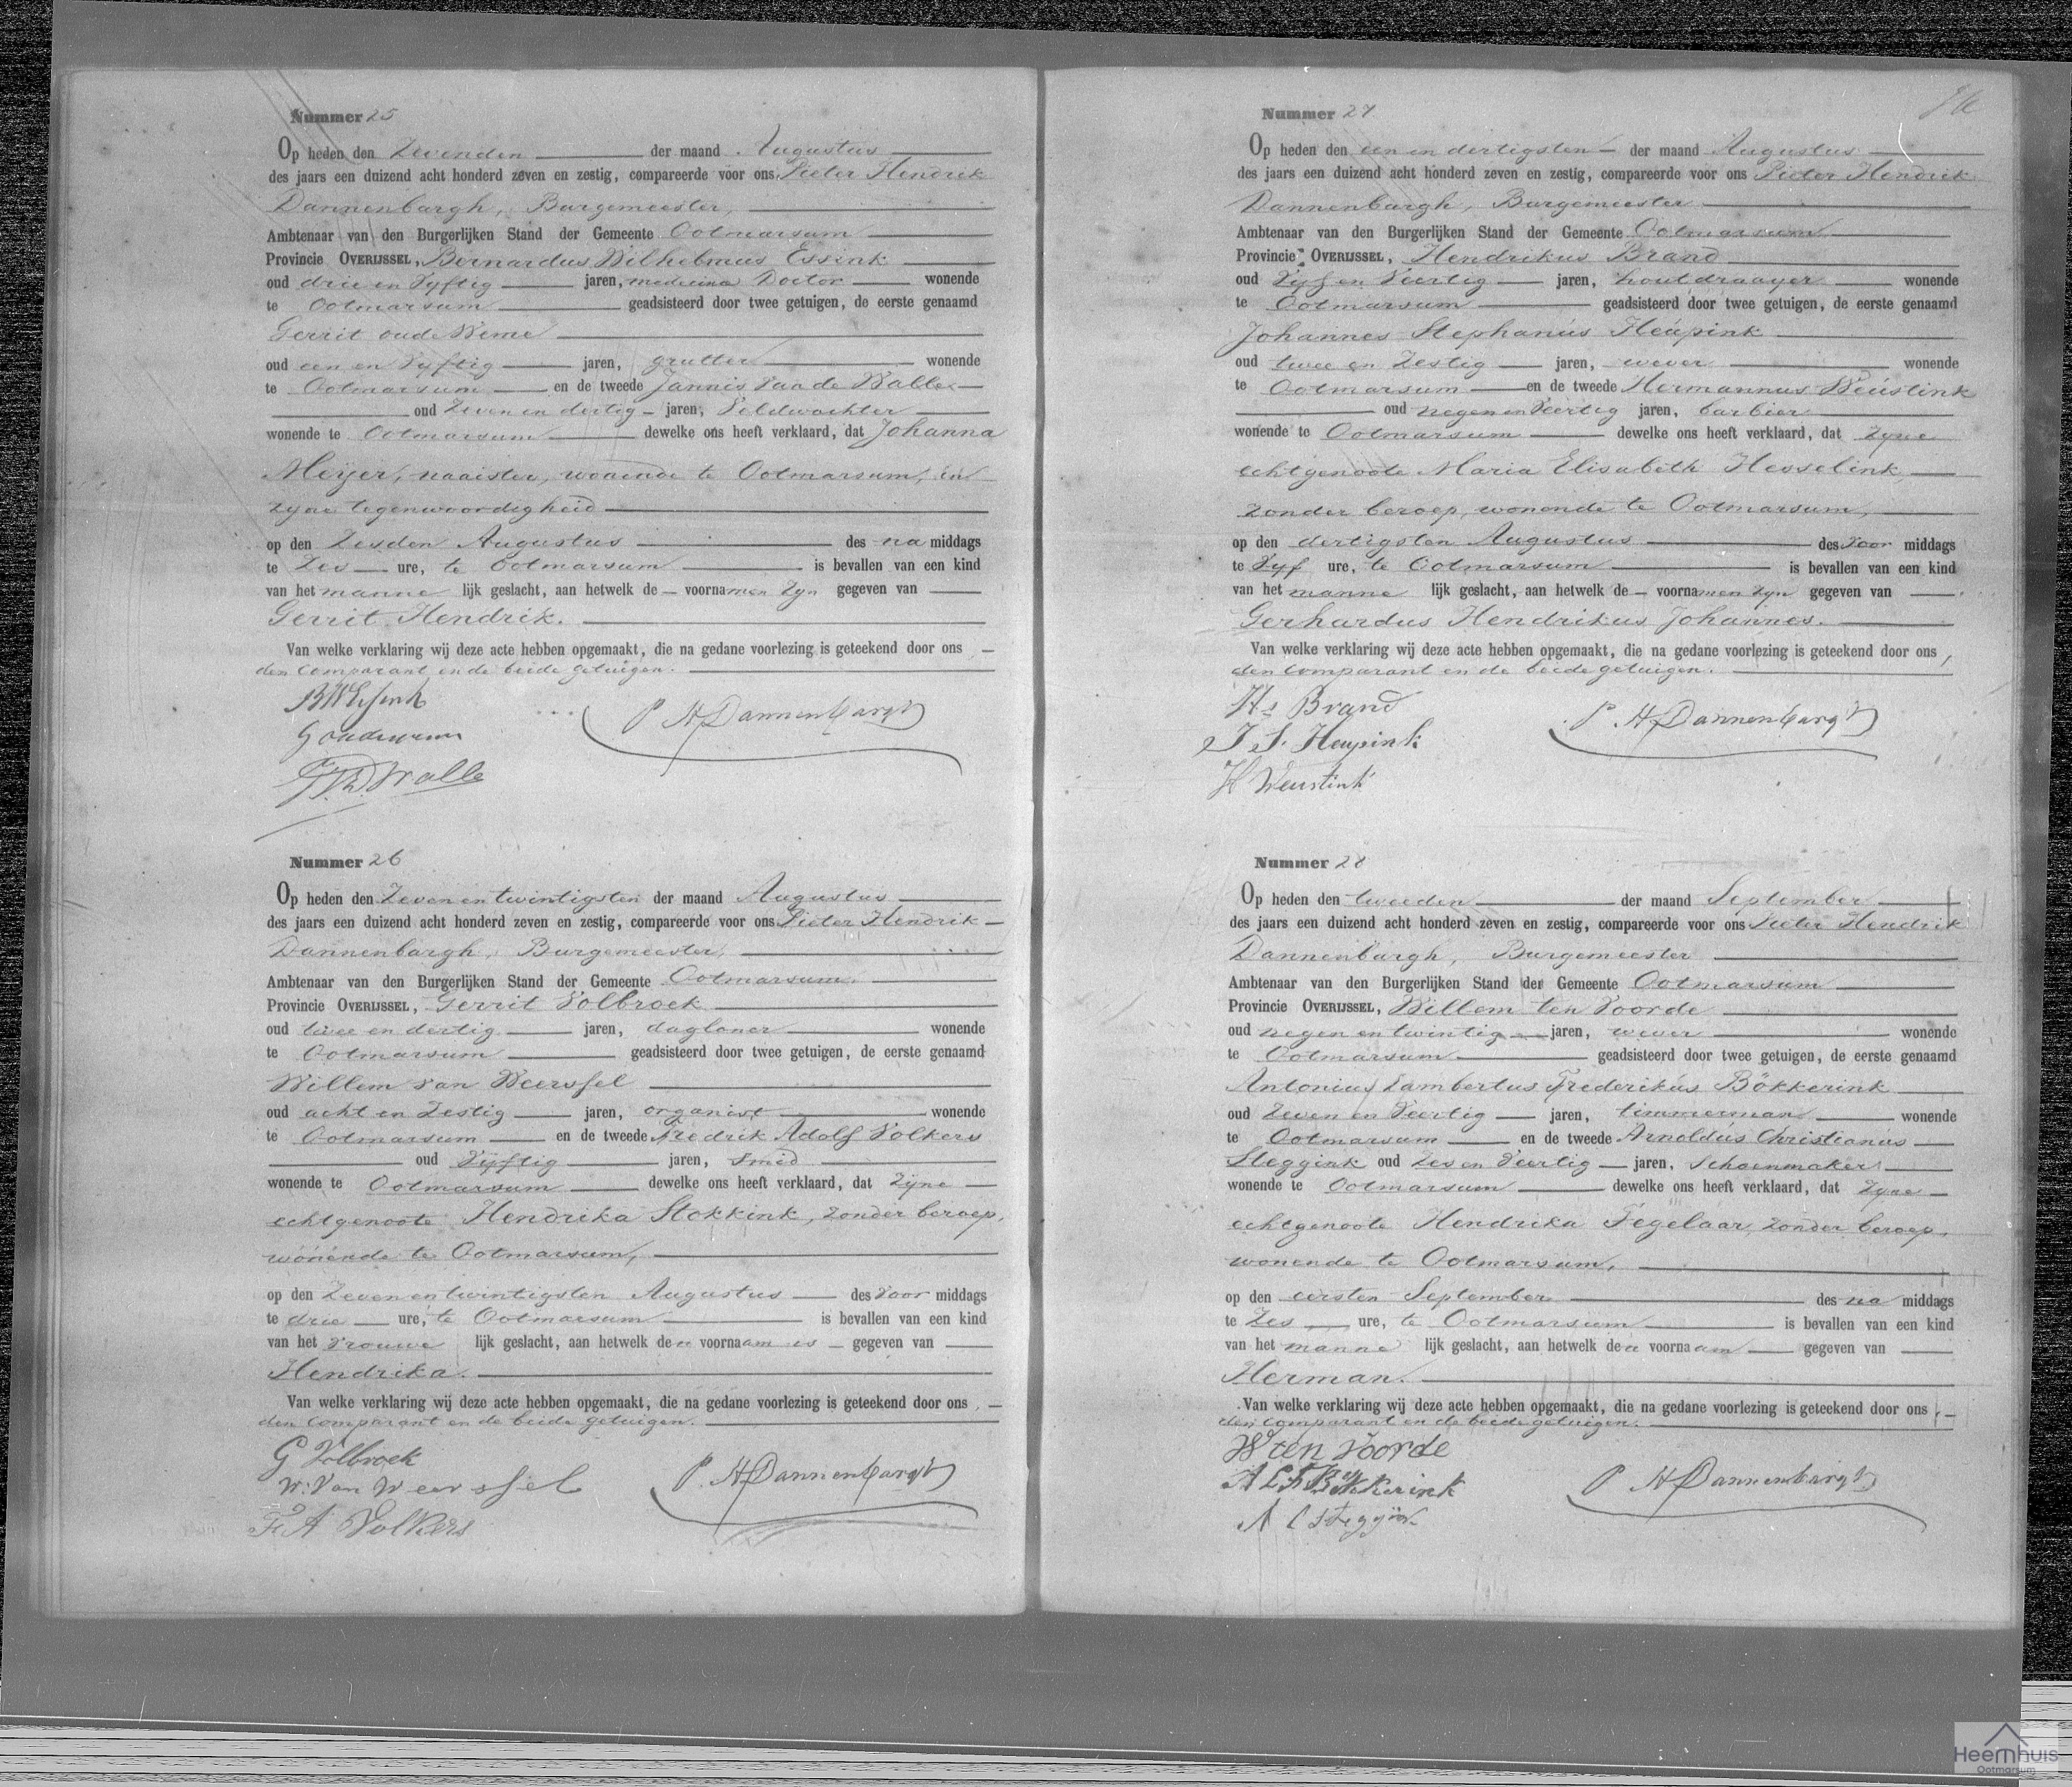 Nummer 25
Op heden den Zevenden der maand Augustus
des jaars een duizend acht honderd zeven en zestig, compareerde voor ons Pieter Hendrik
Dannenbargh, Burgemeester,
Ambtenaar van den Burgerlijken Stand der Gemeente Ootmarsum
Provincie OVERIJSSEL, Bernardus Wilhelmus Essink
oud drie en Vyftig jaren, medicina Doctor wonende
te Ootmarsum geadsisteerd door twee getuigen, de eerste genaamd
Gerrit oude Weme
oud een en Vyftig jaren, grutter wonende
te Ootmarsum en de tweede Jannis Van de Walle
oud Zeven en dertig jaren, Veldwachter
wonende te Ootmarsum dewelke ons heeft verklaard, dat Johanna
Meijer, naaister, wonende te Ootmarsum, in
zyne tegenwoordigheid
op den Zesden Augustus des na middags
te Zes ure, te Ootmarsum is bevallen van een kind
van het manne lijk geslacht, aan hetwelk de voornamen Zyn gegeven van
Gerrit Hendrik.
Van welke verklaring wij deze acte hebben opgemaakt, die na gedane voorlezing is geteekend door ons,
den comparant en de beide getuigen.
BWEssink
P H Dannenbargh
Goudeweme
J.V.D. Walle
Nummer 26
Op heden den Zeven en twintigsten der maand Augustus
des jaars een duizend acht honderd zeven en zestig, compareerde voor ons Pieter Hendrik
Dannenbargh, Burgemeester,
Ambtenaar van den Burgerlijken Stand der Gemeente Ootmarsum.
Provincie OVERIJSSEL, Gerrit Volbroek
oud twee en dertig jaren, dagloner wonende
te Ootmarsum geadsisteerd door twee getuigen, de eerste genaamd
Willem van Weerssel
oud acht en Zestig jaren, organist wonende
te Ootmarsum en de tweede Fredrik Adolf Volkers
oud Vyftig jaren, Smid
wonende te Ootmarsum dewelke ons heeft verklaard, dat Zijne
echtgenoote Hendrika Stokkink, zonder beroep,
wonende te Ootmarsum,
op den Zeven en twintigsten Augustus des Voor middags
te drie ure, te Ootmarsum is bevallen van een kind
van het Vrouwe lijk geslacht, aan hetwelk den voornaam is gegeven van
Hendrika.
Van welke verklaring wij deze acte hebben opgemaakt, die na gedane voorlezing is geteekend door ons,
den comparant en de beide getuigen.
G Volbroek
W: Van Weerssel
P. H Dannenbargh
F A Volkers
Nummer 27
Op heden den een en dertigsten der maand Augustus
des jaars een duizend acht honderd zeven en zestig, compareerde voor ons Pieter Hendrik
Dannenbargh, Burgemeester
Ambtenaar van den Burgerlijken Stand der Gemeente Ootmarsum
Provincie OVERIJSSEL, Hendrikus Brand
oud Vyf en Veertig jaren, houtdraayer wonende
te Ootmarsum geadsisteerd door twee getuigen, de eerste genaamd
Johannes Stephanus Heupink
oud twee en Zestig jaren, wever wonende
te Ootmarsum en de tweede Hermannus Weustink
oud negen en Veertig jaren, barbier
wonende te Ootmarsum dewelke ons heeft verklaard, dat Zyne
echtgenoote Maria Elisabeth Hesselink,
zonder beroep, wonende te Ootmarsum,
op den dertigsten Augustus des Voor middags
te Vyf ure, te Ootmarsum is bevallen van een kind
van het manne lijk geslacht, aan hetwelk de voornamen zyn gegeven van
Gerhardus Hendrikus Johannes.
Van welke verklaring wij deze acte hebben opgemaakt, die na gedane voorlezing is geteekend door ons,
den comparant en de beide getuigen.
Hs Brand
P. H Dannenbargh
J S. Heupink
H Weustink
Nummer 28
Op heden den tweeden der maand September
des jaars een duizend acht honderd zeven en zestig, compareerde voor ons Pieter Hendrik
Dannenbargh, Burgemeester
Ambtenaar van den Burgerlijken Stand der Gemeente Ootmarsum
Provincie OVERIJSSEL, Willem ten Voorde
oud negen en twintig jaren, wever wonende
te Ootmarsum geadsisteerd door twee getuigen, de eerste genaamd
Antonius Lambertus Frederikus Bökkerink
oud Zeven en Veertig jaren, timmerman wonende
te Ootmarsum en de tweede Arnoldus Christianus
Steggink oud Zes en Veertig jaren, Schoenmaker
wonende te Ootmarsum dewelke ons heeft verklaard, dat Zyne
echtgenoote Hendrika Tegelaar, zonder beroep,
wonende te Ootmarsum,
op den eersten September des na middags
te Zes ure, te Ootmarsum is bevallen van een kind
van het manne lijk geslacht, aan hetwelk den voornaam gegeven van
Herman.
Van welke verklaring wij deze acte hebben opgemaakt, die na gedane voorlezing is geteekend door ons,
den comparant en de beide getuigen.
W ten Voorde
A L F Bökkerink
P H Dannenbargh
A C Steggink
Heemhuis
Ootmarsum